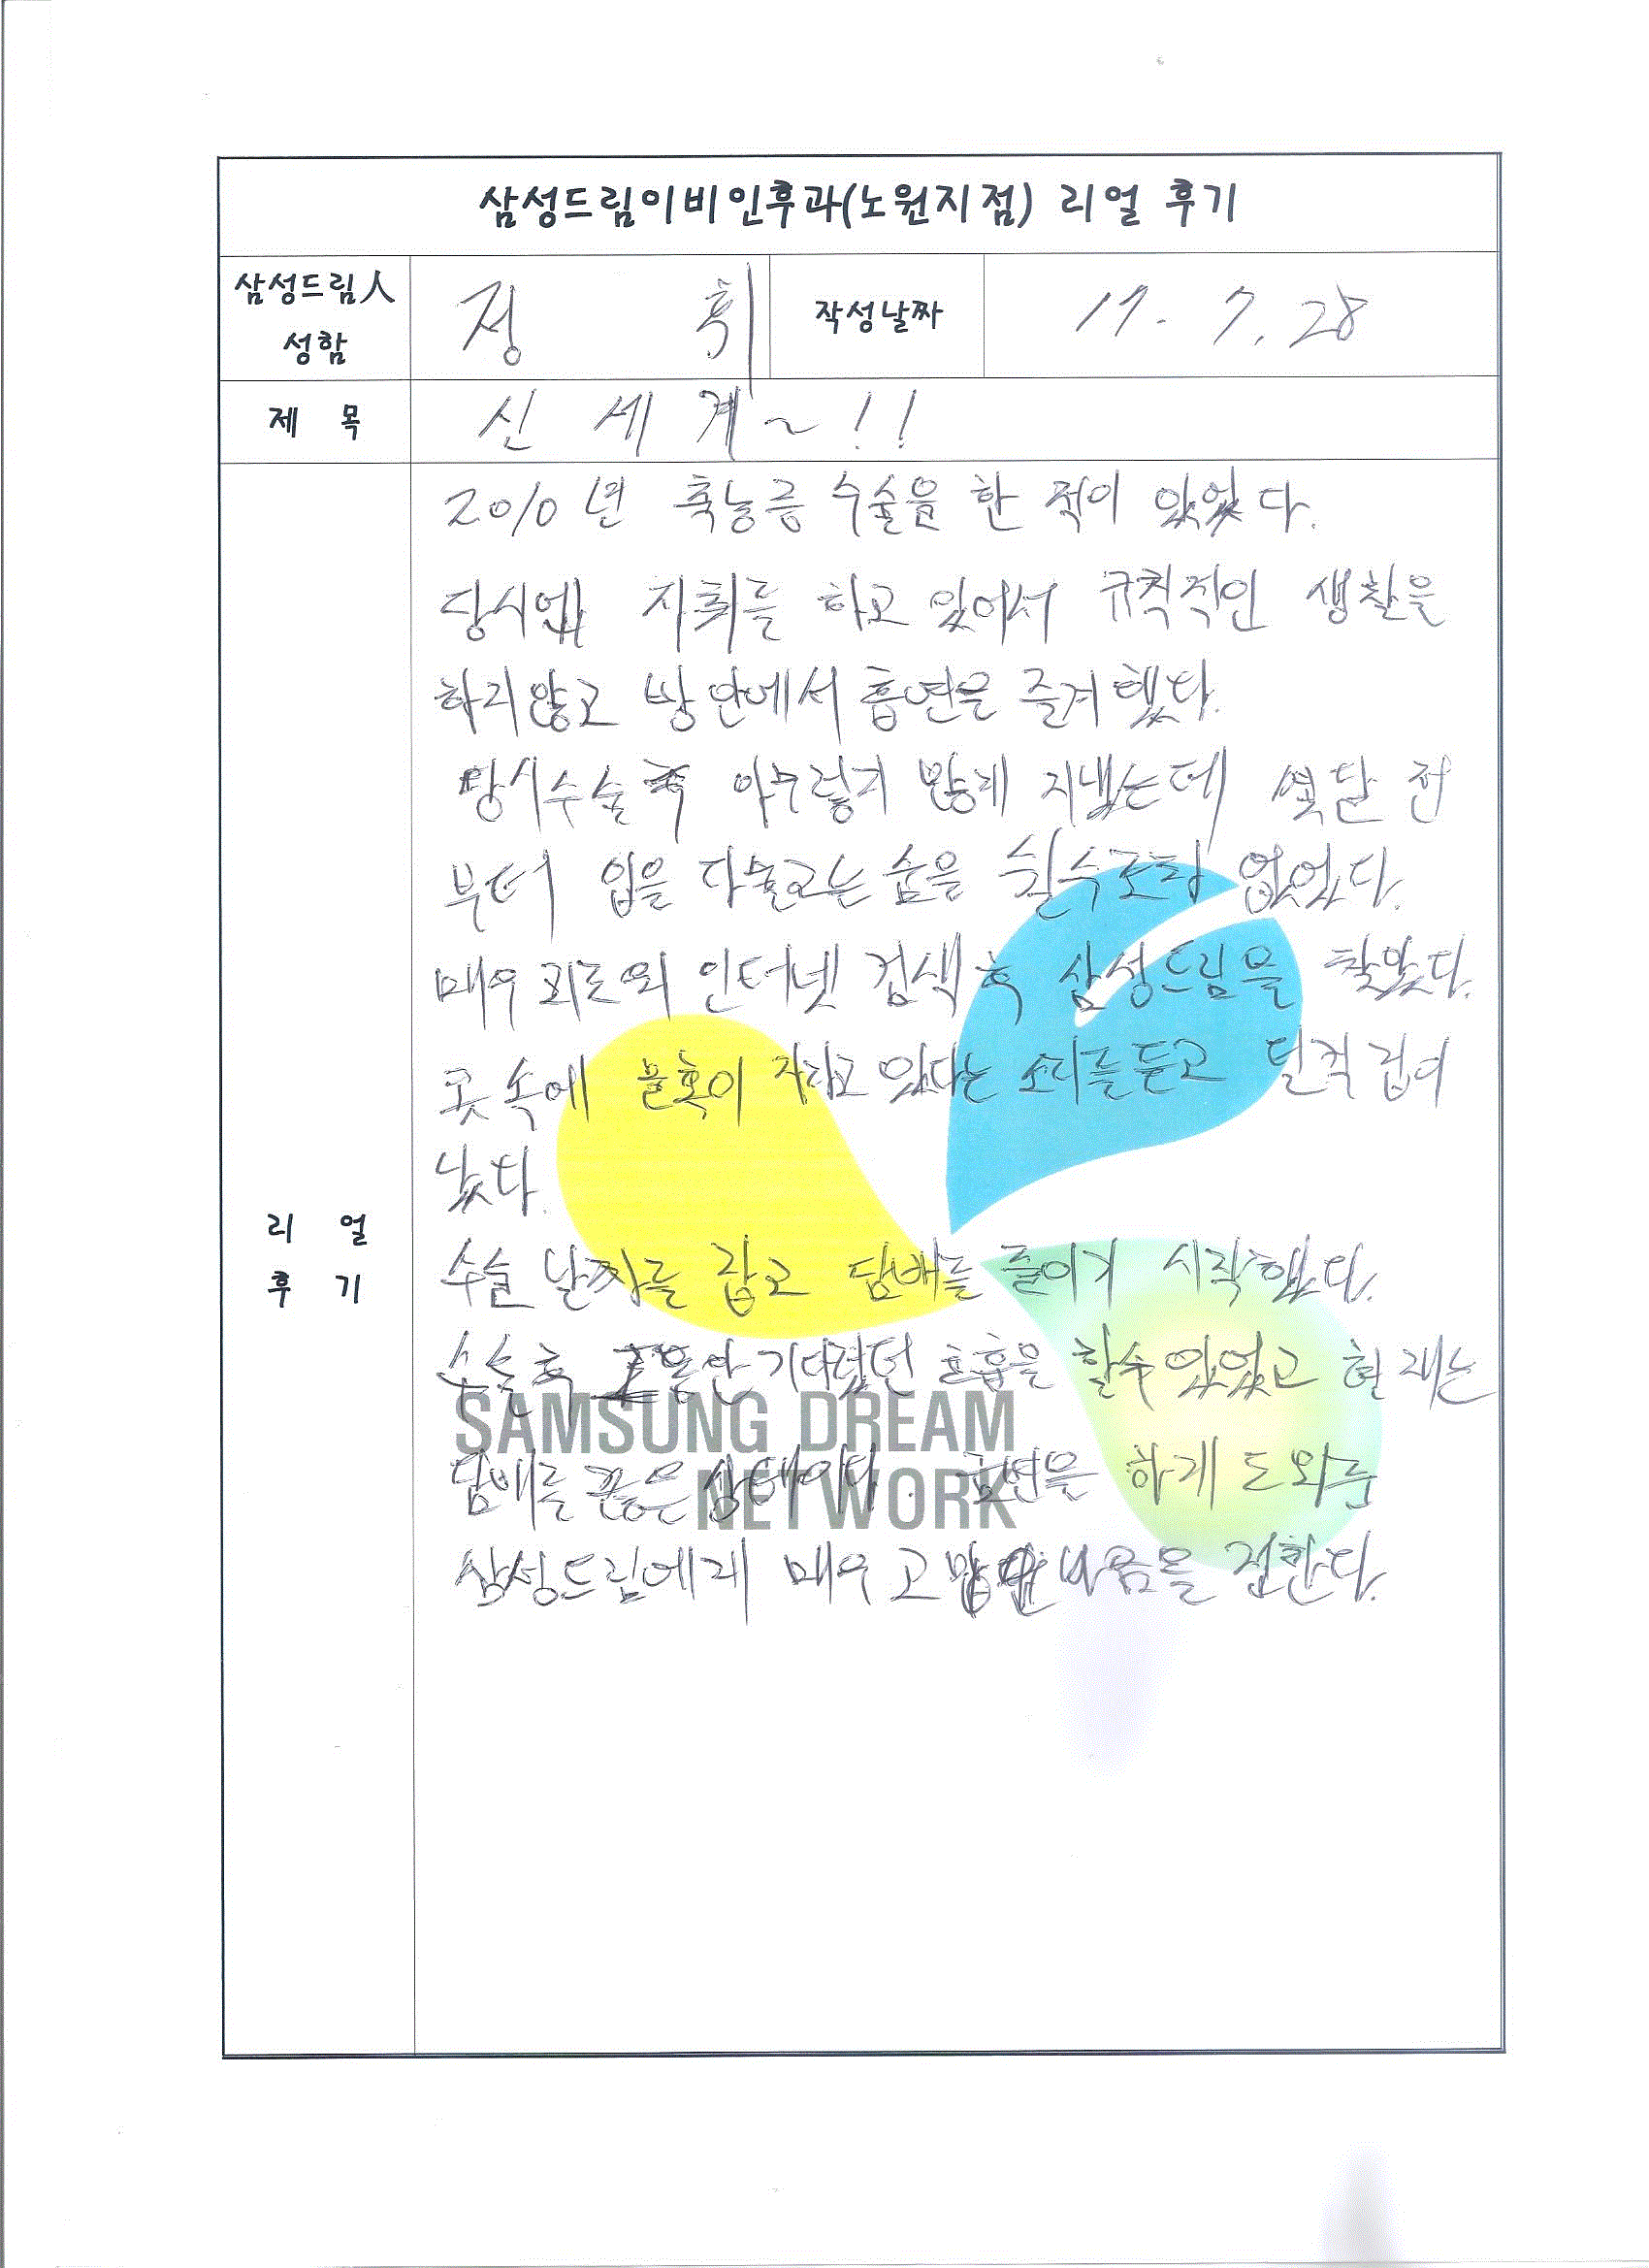 삼성드림이비인후과(노원지점) 리얼 후기
삼성드림人 성함
정 휘
작성날짜
17. 7. 28
제 목
신 세 계 ~ !!
리 얼 후 기
2010년 축농증 수술을 한 적이 있었다.
당시에 자취를 하고 있어서 규칙적인 생활을
하지않고 방안에서 흡연을 즐겨했다.
당시수술후 아무렇지 않게 지냈는데 몇달 전
부터 입을 다물고는 숨을 쉴수조차 없었다.
매우 괴로와 인터넷 검색후 삼성드림을 찾았다.
콧속에 물혹이 자라고 있다는 소리를듣고 덜컥 겁이
났다.
수술 날짜를 잡고 담배를 줄이기 시작했다.
수술후 기다렸던 호흡을 할수있었고 현재는
담배를 끊은 상태이다. 금연을 하게 도와준
삼성드림에게 매우 고 마음을 전한다.
SAMSUNG DREAM
NETWORK